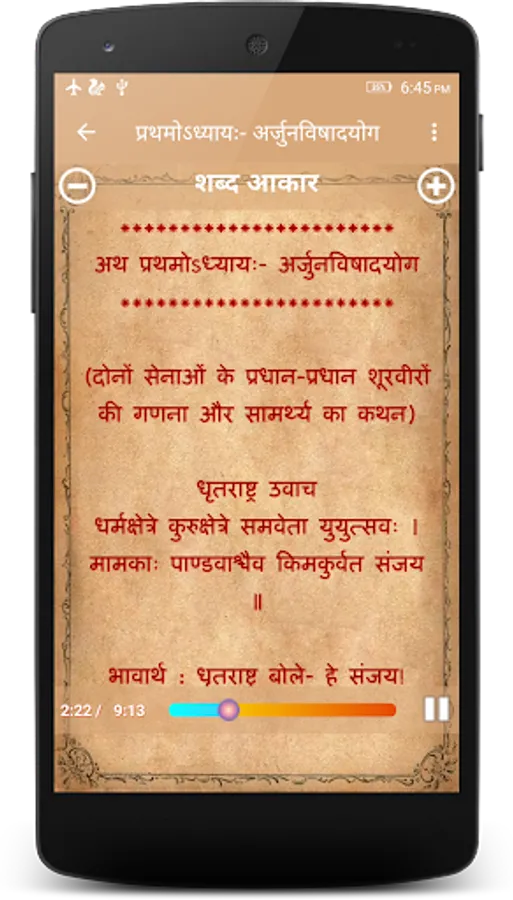 6:45 PM
प्रथमोऽध्यायः- अर्जुनविषादयोग
शब्द आकार
अथ प्रथमोऽध्यायः- अर्जुनविषादयोग
(दोनों सेनाओं के प्रधान-प्रधान शूरवीरों
की गणना और सामर्थ्य का कथन)
धृतराष्ट्र उवाच
धर्मक्षेत्रे कुरुक्षेत्रे समवेता युयुत्सवः ।
मामकाः पाण्डवाश्चैव किमकुर्वत संजय
॥
भावार्थ : धृतराष्ट्र बोले- हे संजय!
2:22 / 9:13